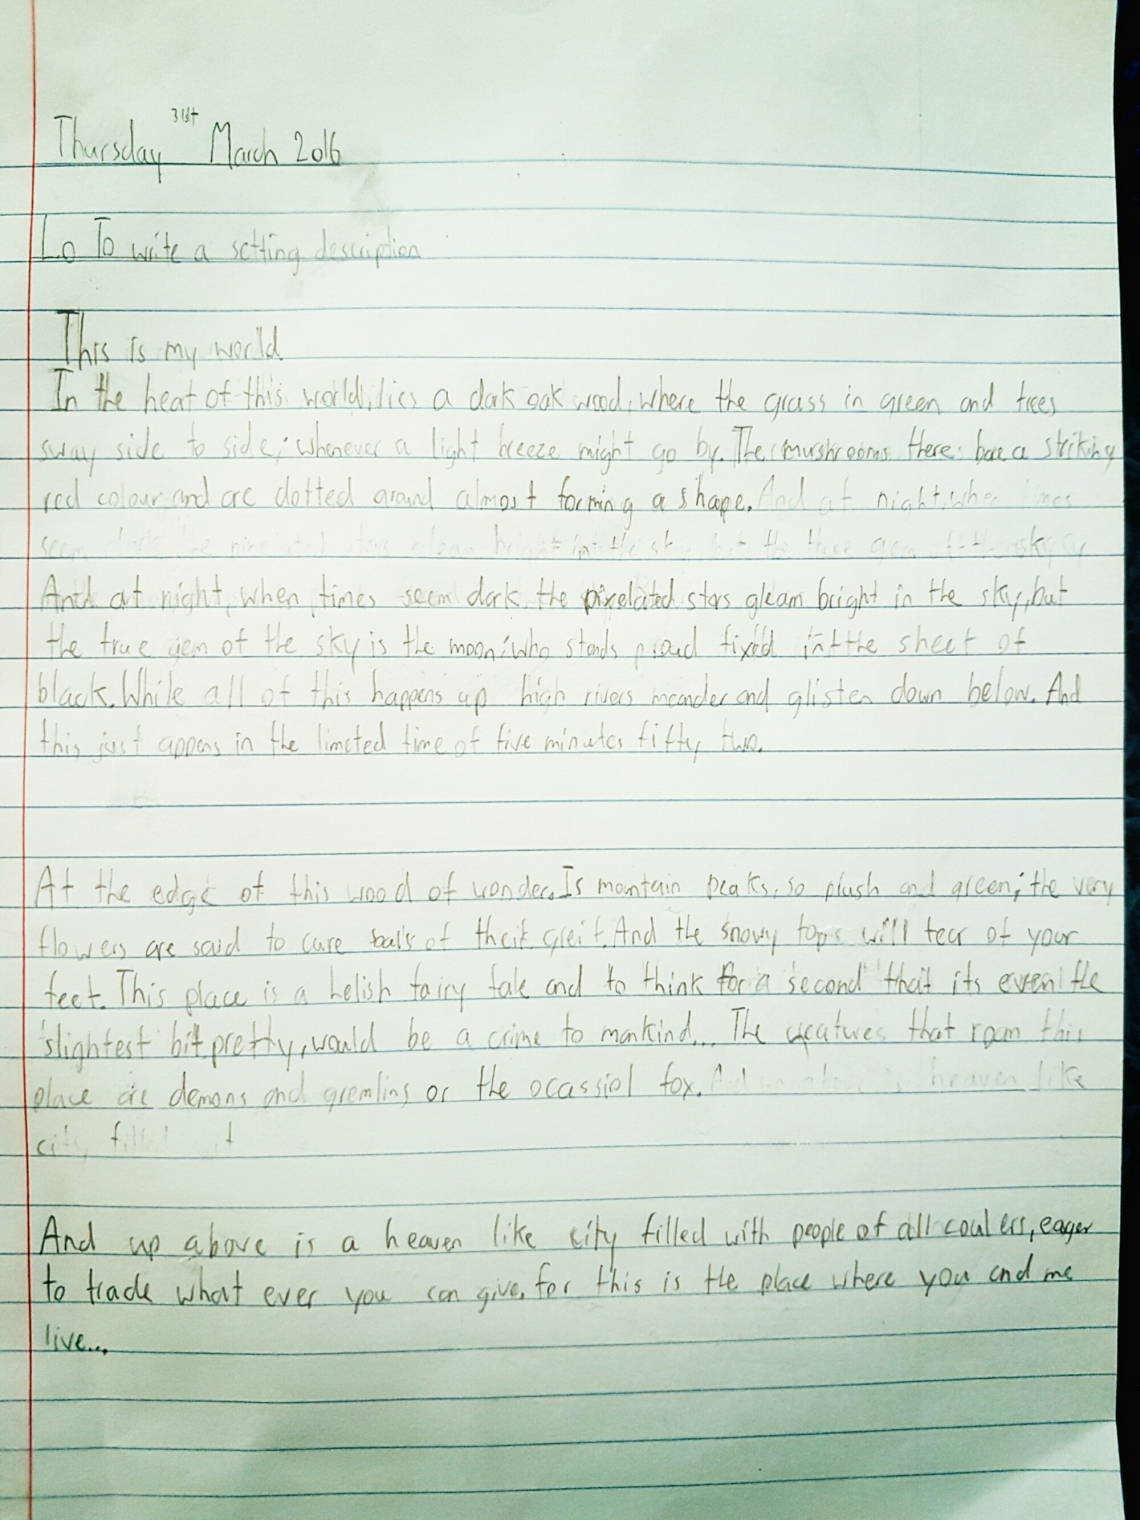 Thursday 31st March 2016
Lo To write a setting description
This is my world
In the heat of this world, lies a dark oak wood, where the grass in green and trees
sway side to side; whenever a light breeze might go by. The mushrooms there bare a striking
red colour and are dotted around almost forming a shape. And at night, when times
seem dark the pixelated stars gleam bright in the sky, but the true gem of the sky
And at night, when times seem dark the pixelated stars gleam bright in the sky, but
the true gem of the sky is the moon; who stands proud fixed in the sheet of
black. While all of this happens up high rivers meander and glisten down below. And
this just appens in the limeted time of five minutes fifty two.
At the edge of this wood of wonder. Is mountain peaks, so plush and green; the very
flowers are said to cure of their greif. And the snowy tops will tear of your
feet. This place is a helish fairy tale and to think for a second that its even the
slightest bit pretty, would be a crime to mankind... The creatures that roam this
place are demons and gremlins or the ocassiol fox. And up above is heaven like
city filled
And up above is a heaven like city filled with people of all coulers, eager
to trade what ever you can give, for this is the place where you and me
live...